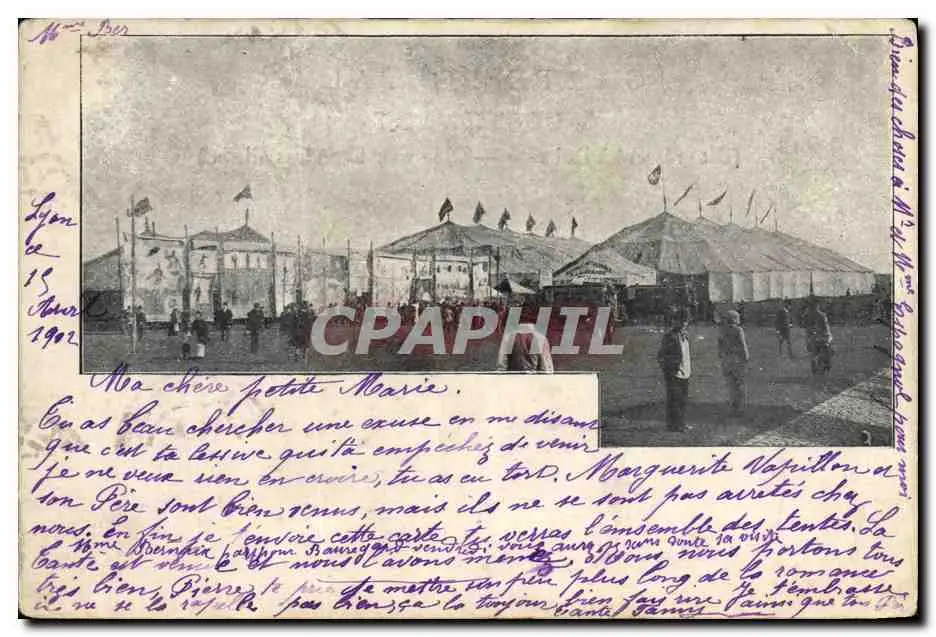 Mme Ber
Lyon
ce
15
Avril
1902
CPAPHIL
Ma chère petite Marie.
Tu as beau chercher une excuse en me disant
que c'est ta lessive qui t'a empéchez de venir
je ne veux rien en croire, tu as eu tort. Marguerite Vapillon et
son Père sont bien venus, mais ils ne se sont pas arretés chez
nous. En fin je t'envoie cette carte tu verras l'ensemble des tentes. La
Mme Bernaix part pour Beauregard vendredi vous aurez sans doute sa visite
Tante est venue et nous l'avons menez. Nous, nous portons tous
très bien, Pierre te prie de mettre son père plus long de la romance
il ne se la rapelle pas bien, ça la toujour bien fais rire. Je t'embrasse
Tante Fanny ainsi que ton
Bien des choses à Mr et Mme Espagnol pour moi